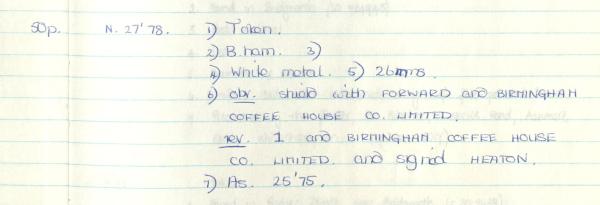 50p. N. 27'78. 1) Token.
2) B'ham. 3)
4) White metal. 5) 26mms.
6) obv. shield with FORWARD and BIRMINGHAM
COFFEE HOUSE CO. LIMITED.
rev. 1 and BIRMINGHAM COFFEE HOUSE
CO. LIMITED. and signed HEATON.
7) As. 25'75.